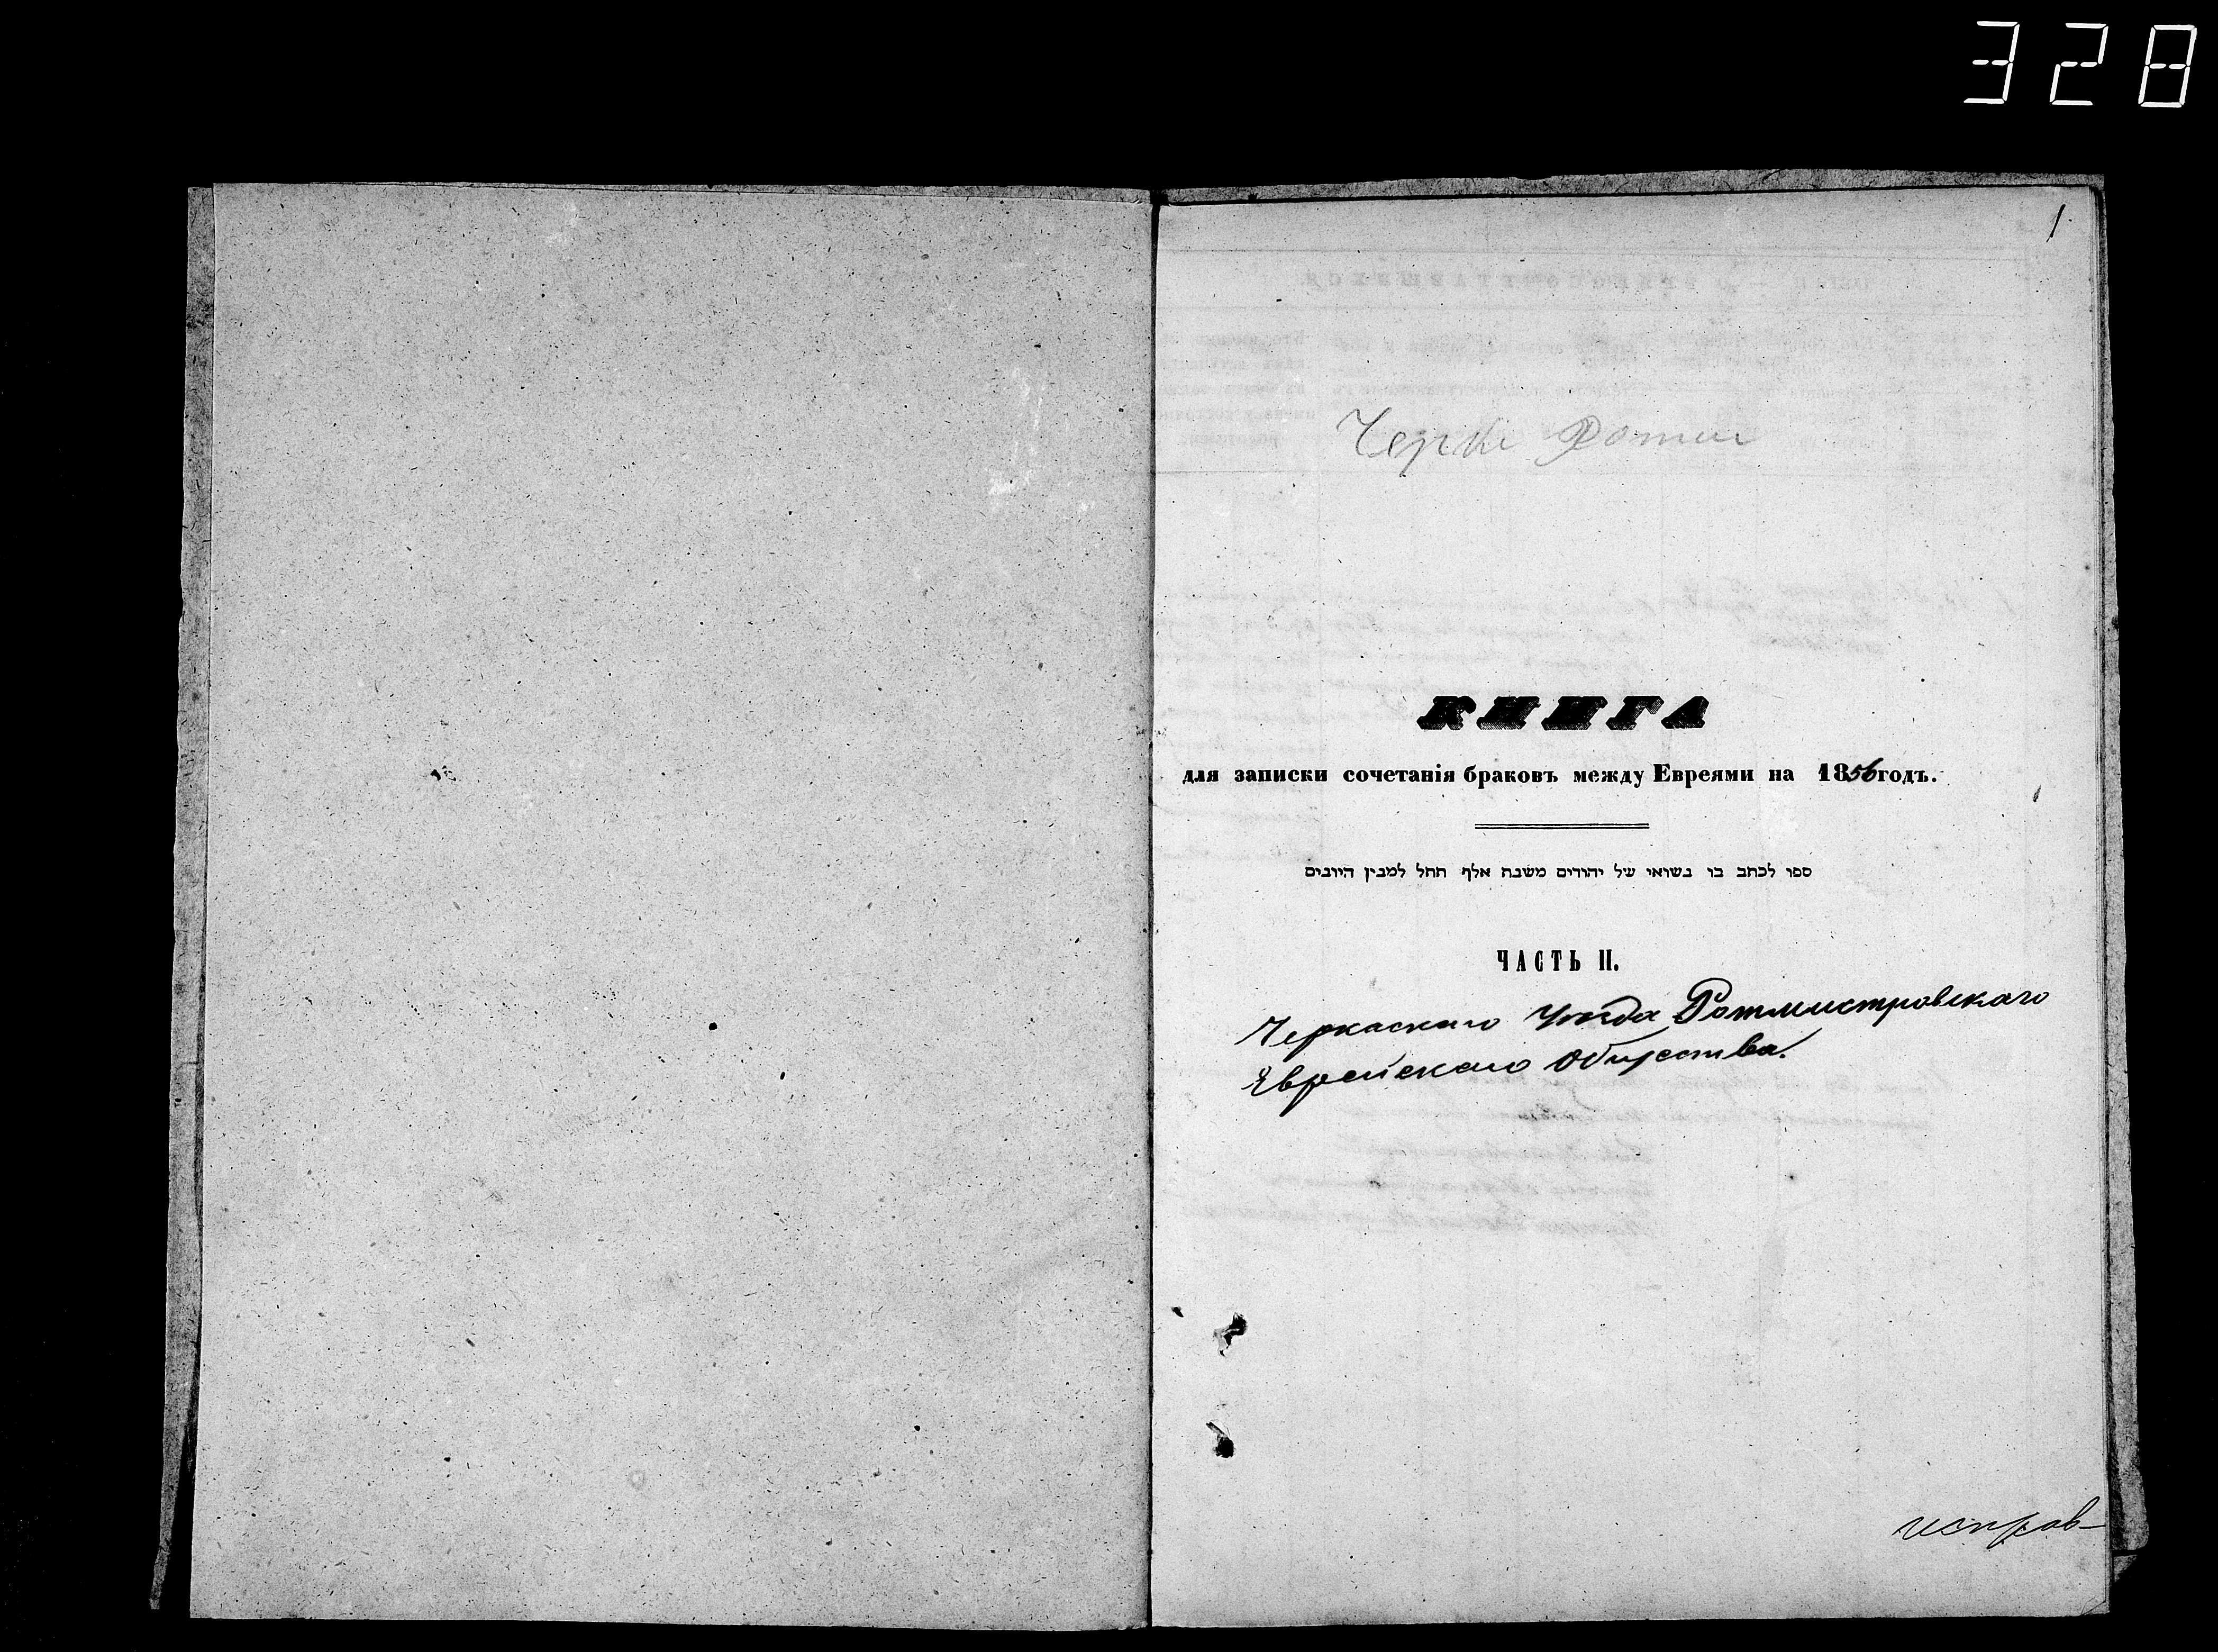 328
1
Черк Ротми
КНИГА
для записки сочетанія браковъ между Евреями на 1856 годъ.
ספר לכתב בו נשואי של יהודים משנת אלף תתל למנין היונים
ЧАСТЬ II.
Черкаскаго Уезда Ротмистровскаго
Еврейскаго Общества.
исправ-